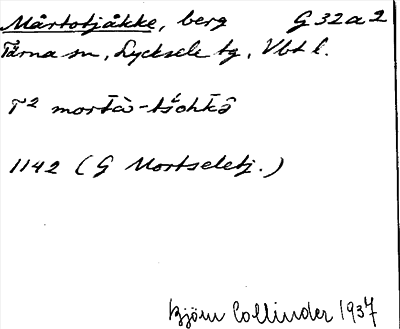 Mårtotjåkke, berg G 32 a 2
Tärna sn, Lycksele tg, Vbt l.
T² mortā̀-tśohkē̮
1142 (G Mortseletj.)
Björn Collinder 1937